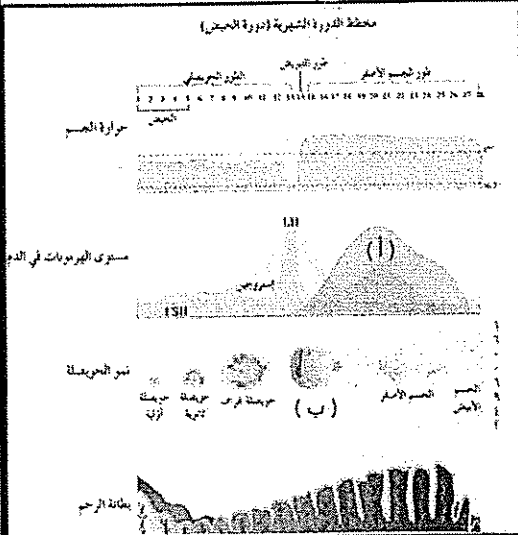 مخطط الدورة الشهرية (دورة الحيض)
طور التبويض
الطور الحويصلي
طور الجسم الأصفر
1 2 3 4 5 6 7 8 9 10 11 12 13 14 15 16 17 18 19 20 21 22 23 24 25 26 27 28
الحيض
حرارة الجسم
LH
(أ)
مستوى الهرمونات في الدم
إستروجين
FSH
نمو الحويصلة
حويصلة أولية
حويصلة ثانوية
حويصلة جراف
(ب)
الجسم الأصفر
الجسم الأبيض
بطانة الرحم